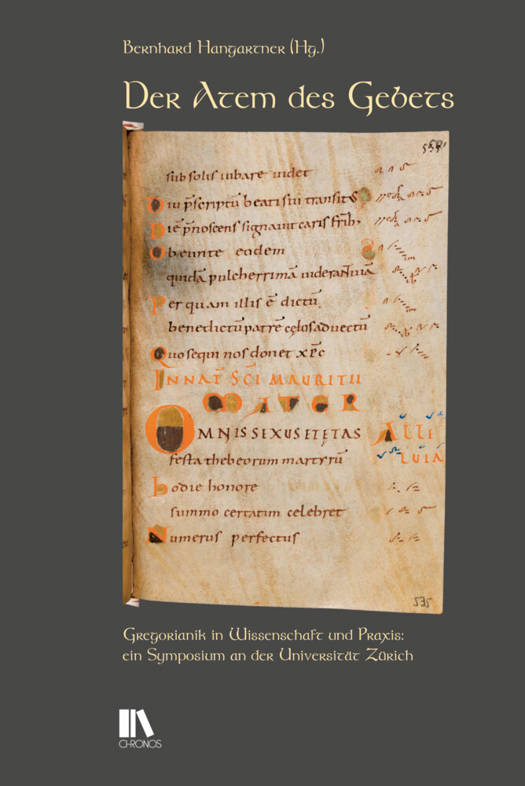 Bernhard Hangartner (Hg.)
Der Atem des Gebets
559
sub solis iubare uidet
Diu p̄scriptū beati sui transitū
Diē p̄noscens signauit caris frīb;
Obeunte eodem
quidā pulcherrimā uiderant uiā
Per quam illis ē dictū
benedictū patrē cęlos aduectū
Quo sequi nos donet xp̄c
IN NAT̄ SC̄I MAURITII
MATER
OMNIS SEXUS ET ĘTAS ALLE
festa thebeorum martyrū LUIA
hodie honore
summo certatim celebret
Numerus perfectus
535
Gregorianik in Wissenschaft und Praxis:
ein Symposium an der Universität Zürich
CHRONOS